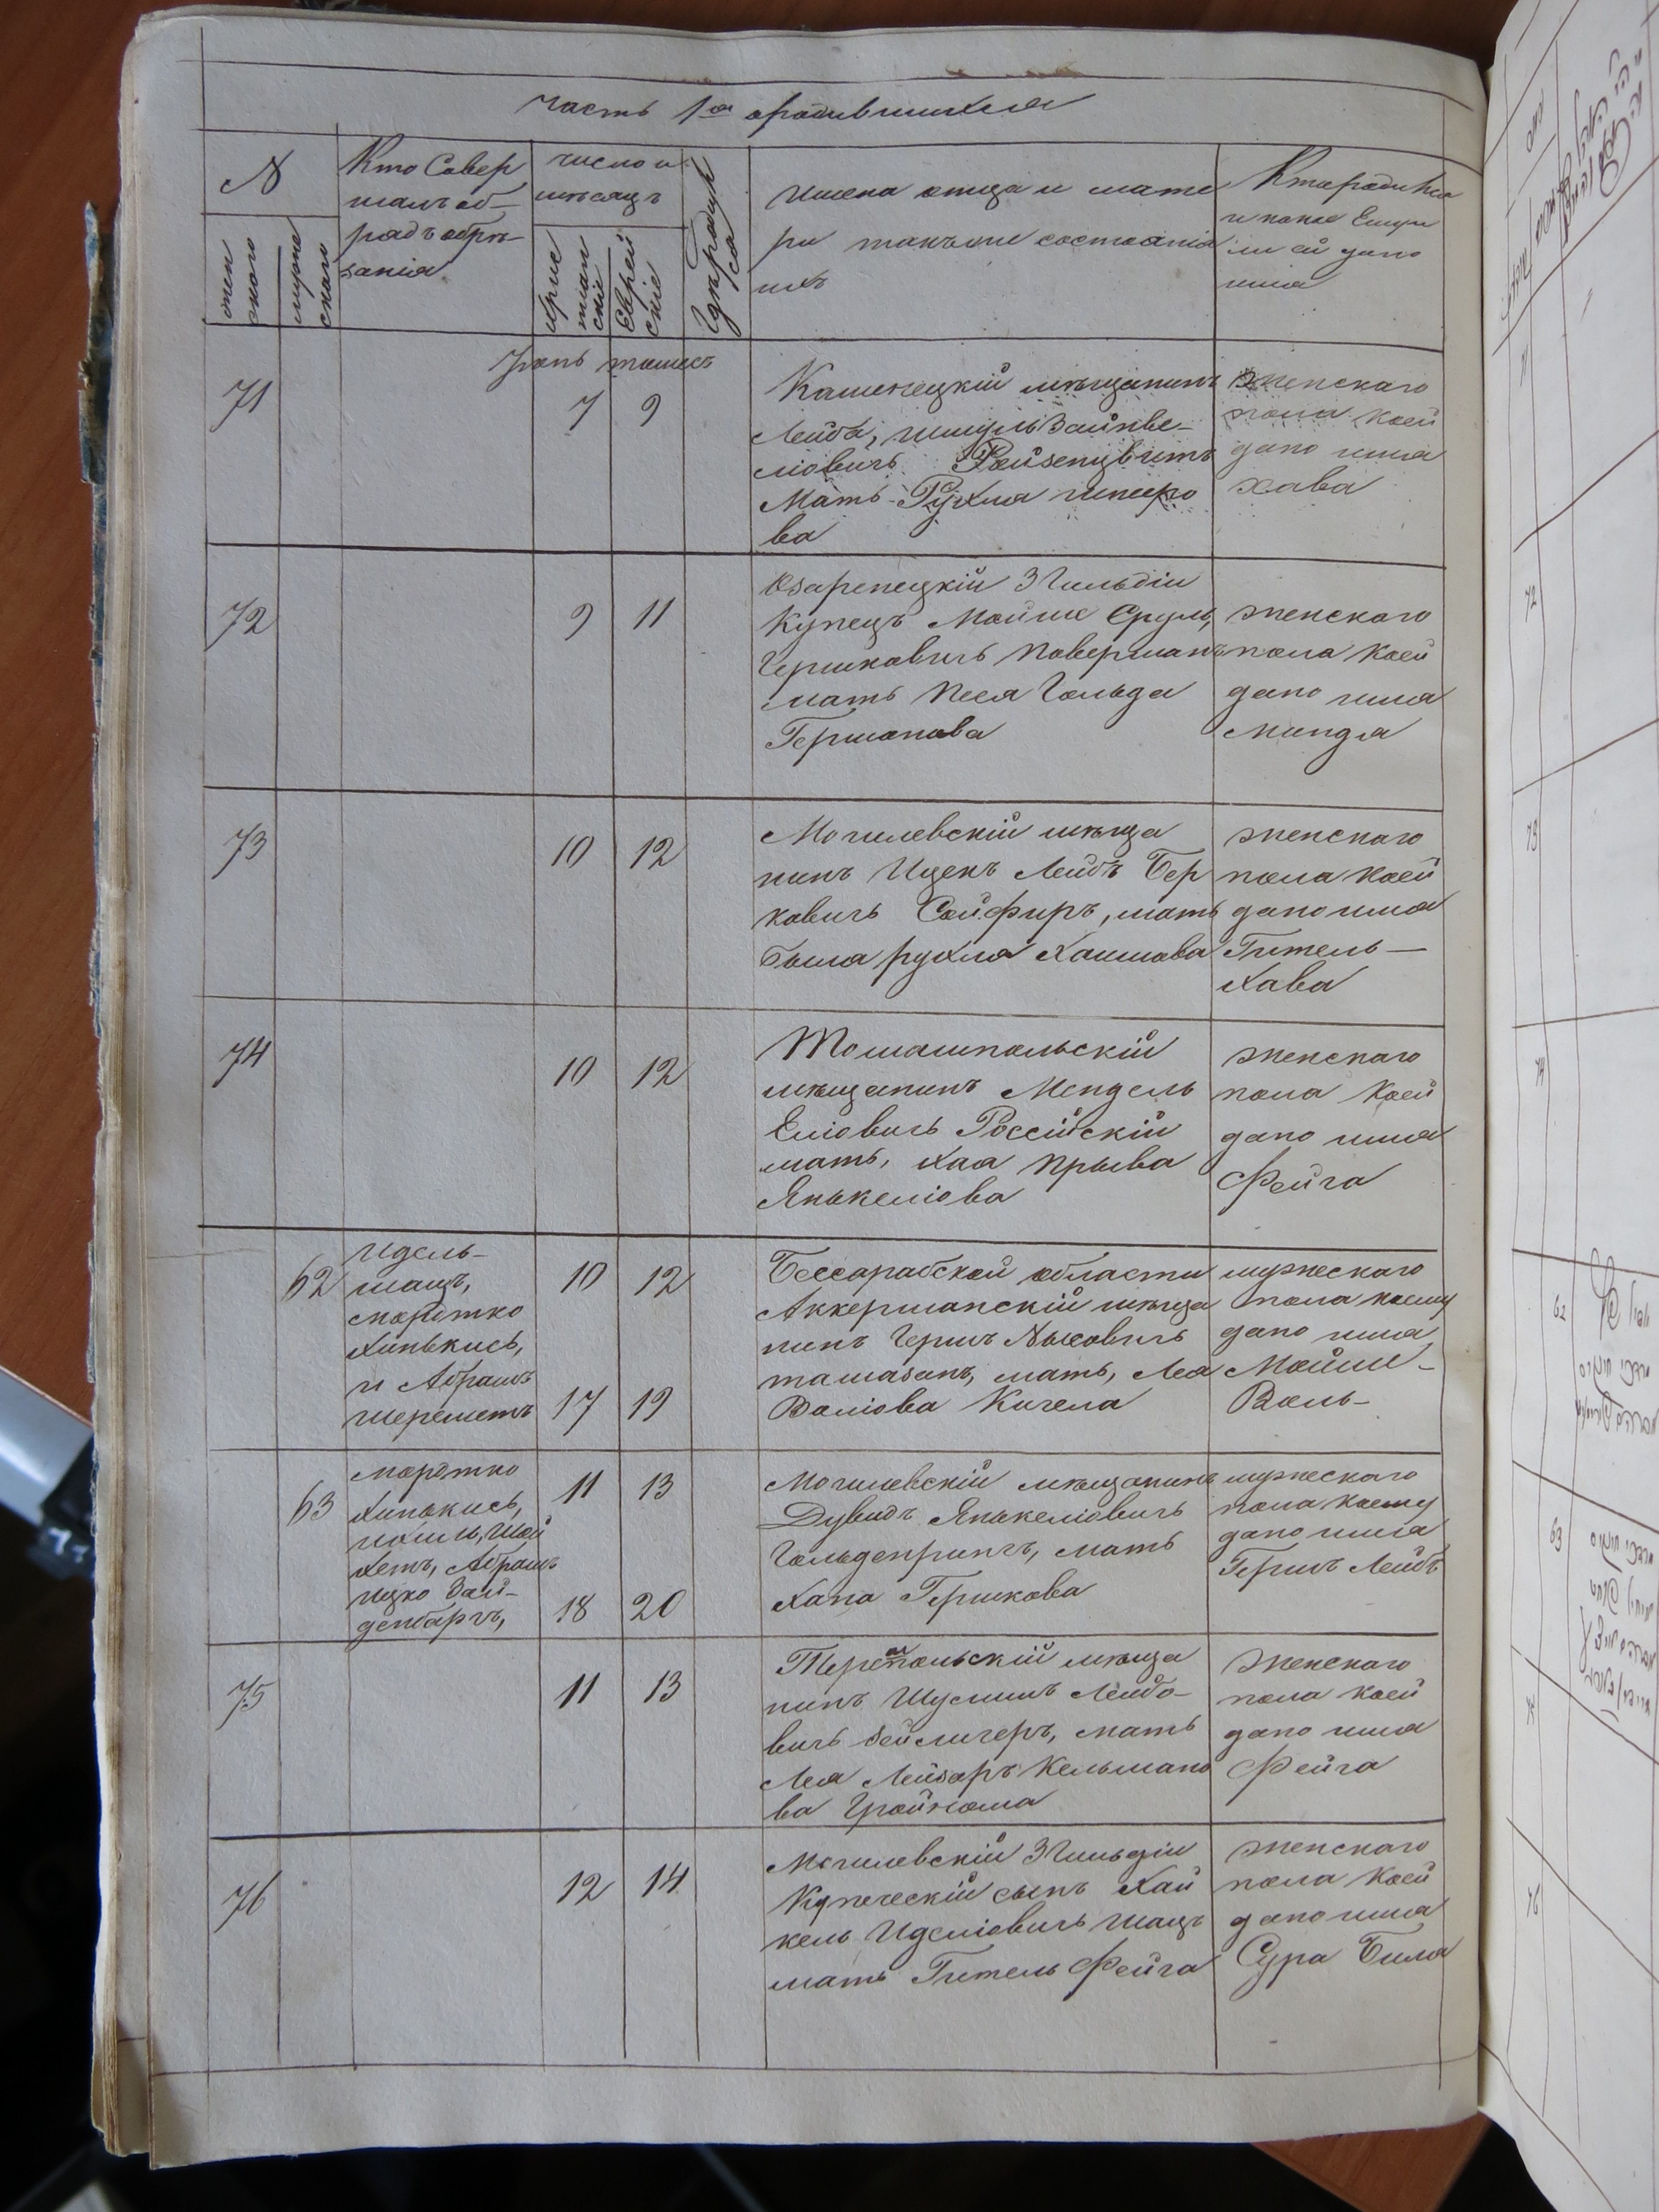 Часть 1я о родившихся
№
женскаго
мужескаго
Кто Совер
шалъ об-
рядъ обрѣ-
занія
число и
мѣсяцъ
христіанскіе
Еврейскіе
Гдѣ родился
имена отца и мате
ри такъже состоянія
ихъ
Кто родился
и какое Ему и
ли ей дано
имя
Іюнь тамизъ
71
7
9
Каменецкій мѣщанинъ
Лейба, Шмуль Зайнве-
ліовичъ Ройзенцвитъ
Мать Рухля
ва
женскаго
пола коей
дано имя
Хава
72
9
11
Озаренецкій 3 Гильдіи
Купецъ Мойше Сруль,
Гершковичъ Поверманъ
мать Песя Гольда
Германова
женскаго
пола коей
дано имя
Миндя
73
10
12
Могилевскій мѣща
нинъ Ицекъ Лейбъ Бер
ковичъ Сойферъ, мать
была рухля Хаимова
женскаго
пола коей
дано имя
Гитель-
Хава
74
10
12
Томашпольскій
мѣщанинъ Мендель
Еліовичъ Россійскій
мать, хая Прыва
Янькеліова
женскаго
пола коей
дано имя
Фейга
62
Идель-
шацъ,
мордтко
Хинькись,
и Абрамъ
шереметъ
10
12
17
19
Бессарабской области
Аккерманскій мѣща
нинъ Гершъ Нысовичъ
тамазанъ, мать, Лея
Воліова Кигела
мужескаго
пола коему
дано имя
Мойше-
Воль-
63
мордтко
Хинькись,
Абрамъ
ицко Вай-
денбаргъ,
11
13
18
20
Могилевскій мѣщанинъ
Дувидъ Янькеліовичъ
Гольденрингъ, мать
Хана Гершкова
мужескаго
пола коему
дано имя
Гершъ Лейбъ
75
11
13
мѣща
нинъ Шулимъ Лейбо-
вичъ Зейлигеръ, мать
Лея Лейзоръ Кельмано
ва Гройсома
женскаго
пола коей
дано имя
Фейга
76
12
14
Могилевскій 3 Гильдіи
Купеческій сынъ Хай
кель Иделіовичъ шацъ
мать Гитель Фейга
женскаго
пола коей
дано имя
Сура Бима